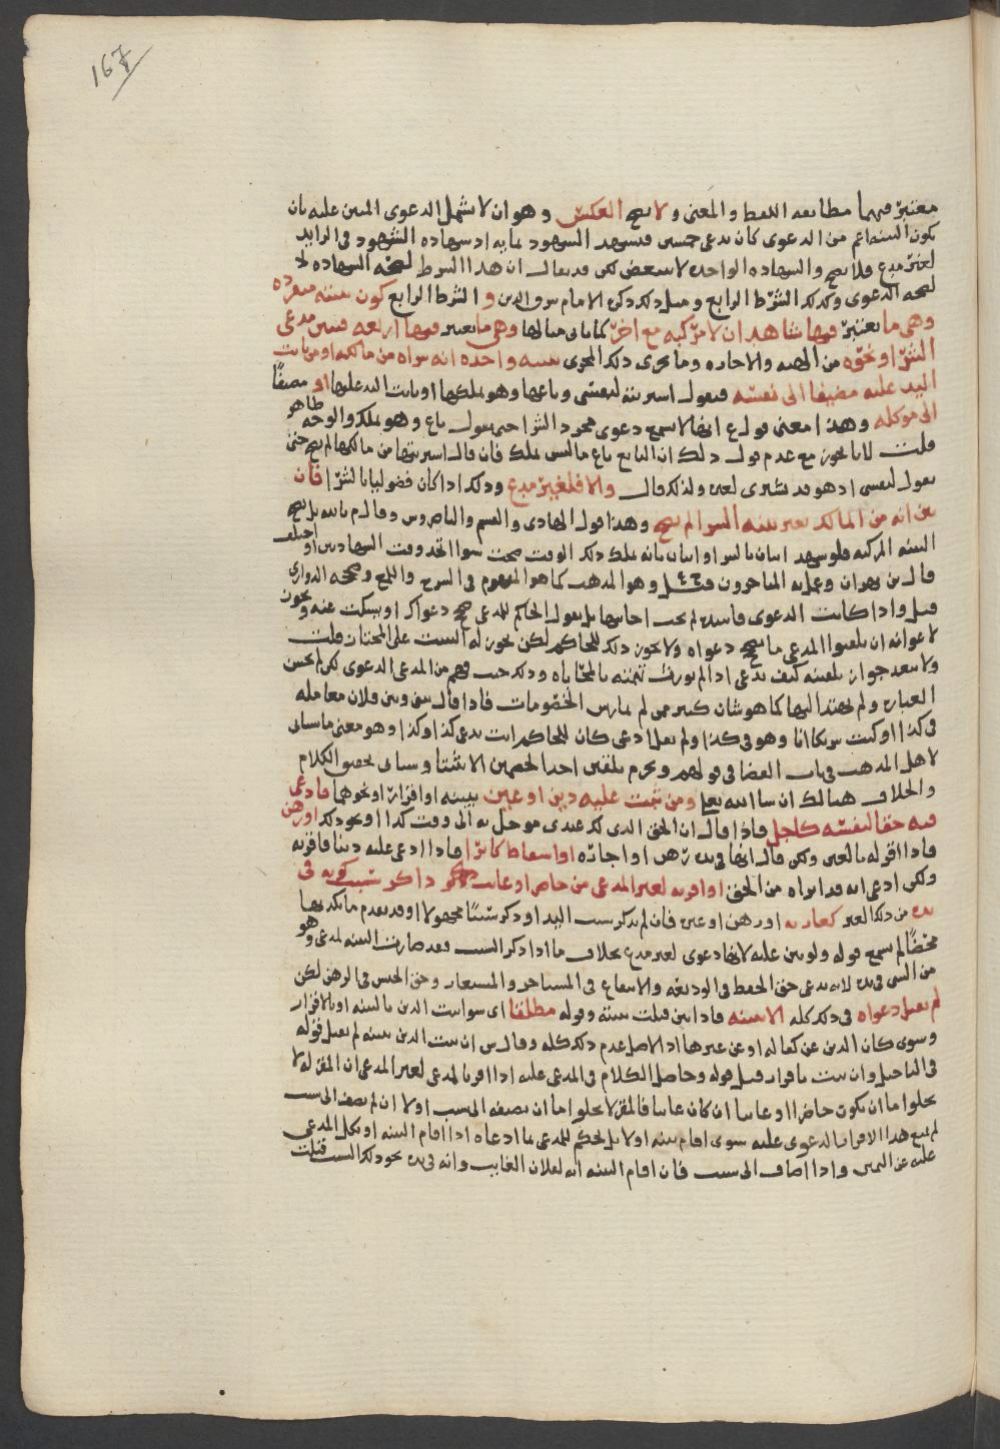 167
معتبرة فيهما مطابقه اللفط والمعنى ولا يصح العكس وهو ان لا تشمل الدعوى المبين عليه بان
تكون البينه اعم من الدعوى كان يدعي خمسين فيشهد الشهود بمايه اذ شهاده الشهود في الزايد
لغير مدع فلا تصح والشهاده الواحده لا تتبعض لكن قد يقال ان هذا الشرط لصحه الشهاده لا
لصحه الدعوى وكذلك الشرط الرابع ومثل ذلك ذكره الامام شرف الدين و الشرط الرابع كون بينته منفرده
وهي ما يعتبر فيها شاهدان لا مركبه مع اخر كما ياتي مثالها وهي ما يعتبر فيها اربعه فيبين مدعي
الشرا ونحوه من الهبه والاجاره وما جرى ذلك المجرى ببينه واحده انه شراه من مالكه او من ثابت
اليد عليه مضيفا الى نفسه فيقول اشتريته لنفسي وباعها وهو يملكها او ثابت اليد عليها او مضيفًا
الى موكله وهذا معنى قول ع انها لا تسمع دعوى مجرد الشرا حتى يقول باع وهو يملك والوجه ظاهر
قلت لانا نجوز مع عدم قول ذلك ان البايع باع ما ليس بملك فان قال اشتريتها من مالكها لم يصح حتى
يقول لنفسي اذ هو قد يشتري لغيره ولذلك قال والا فلغير مدع وذلك اذا كان فضوليا بالشرا فان
بين انه من المالك بغير بينه الشرا لم يصح وهذا قول الهادي والقسم والناصر وس وقال م بالله بل تصح
البينه المركبه فلو شهد اثنان بالشرا واثنان بانه ملك ذلك الوقت صحت سوا اتحد وقت الشهادتين او اختلف
قال بن بهران وعمل به المتاخرون وهو المذهب كما هو المفهوم في الشرح واللمع وصححه الدواري
قيل واذا كانت الدعوى فاسده لم تجب اجابتها بل يقول الحاكم للمدعي صحح دعواك او يسكت عنه ويجوز
لاعوانه ان يلقنوا المدعي ما يصحح دعواه ولا يجوز ذلك للحاكم لكن يجوز له التثبت على المختار قلت
ولا يبعد جواز تلقينه كيف يدعي اذا لم يورث تهمته بالمحاباه وذلك حيث فهم من المدعي الدعوى لكن لم يحسن
العباره ولم يهتد اليها كما هو شان كثير ممن لم يمارس الخصومات فاذا قال بيني وبين فلان معامله
في كذا او كنت شريكا انا وهو في كذا ولم يقل ادعي كان للحاكم انت تدعي كذا وكذا وهو معنى ما سياتي
لاهل المذهب في باب القضا في قولهم ويحرم تلقين احد الخصمين الا تثبتا وسياتي تحقيق الكلام
والخلاف هنالك ان شا الله تعالى ومن ثبت عليه دين او عين ببينه او اقرار او نحوهما فادعى
فيه حقا لنفسه كاجل فاذا قال ان الحق الذي لك عندي موجل به الى وقت كذا او نحو ذلك او رهن
فاذا اقر له بالعين ولكن قال انها في يده رهن او اجاره او اسقاط كابرا فاذا ادعى عليه دينا فاقر به
ولكن ادعى انه قد ابراه من الحق او اقر به لغير المدعي من حاضر او غايب ذاكر سبب كونه في
يده من ذلك الغير كعاريه او رهن او غيره فان لم يذكر سبب اليد او ذكر شيئًا مجهولا او قد تقدم ما يكذبها
محضًا لم يسمع قوله ولو بين عليه لانها دعوى لغير مدع بخلاف ما اذا ذكر السبب فقد صارت البينه لمدعي وهو
من الشي في يده لانه يدعي حق الحفظ في الوديعه والانتفاع في المستاجر والمستعار وحق الحبس في الرهن لكن
لم تقبل دعواه في ذلك كله الا ببينه فاذا بين قبلت بينته وقوله مطلقا اي سوا ثبت الدين بالبينه او بالاقرار
وسوى كان الدين عن كفاله او عن غيرها اذ الاصل عدم ذلك كله وقال س ان ثبت الدين ببينه لم يقبل قوله
في التاجيل وان ثبت باقرار قبل قوله وحاصل الكلام في المدعى عليه اذا اقر بالمدعى لغير المدعي ان المقر له لا
يخلوا ما ان يكون حاضرا او غايبا ان كان غايبا فالمقر لا يخلوا ما ان يضيفه الى سبب او لا ان لم يضف الى سبب
لم يمنع هذا الاقرار الدعوى عليه سوى اقام بينه او لا بل يحكم للمدعي بما ادعاه اذا اقام البينه او نكل المدعى
عليه عن اليمين واذا اضاف الى سبب فان اقام البينه انه لفلان الغايب وانه في يده نحو ذلك السبب قبلت